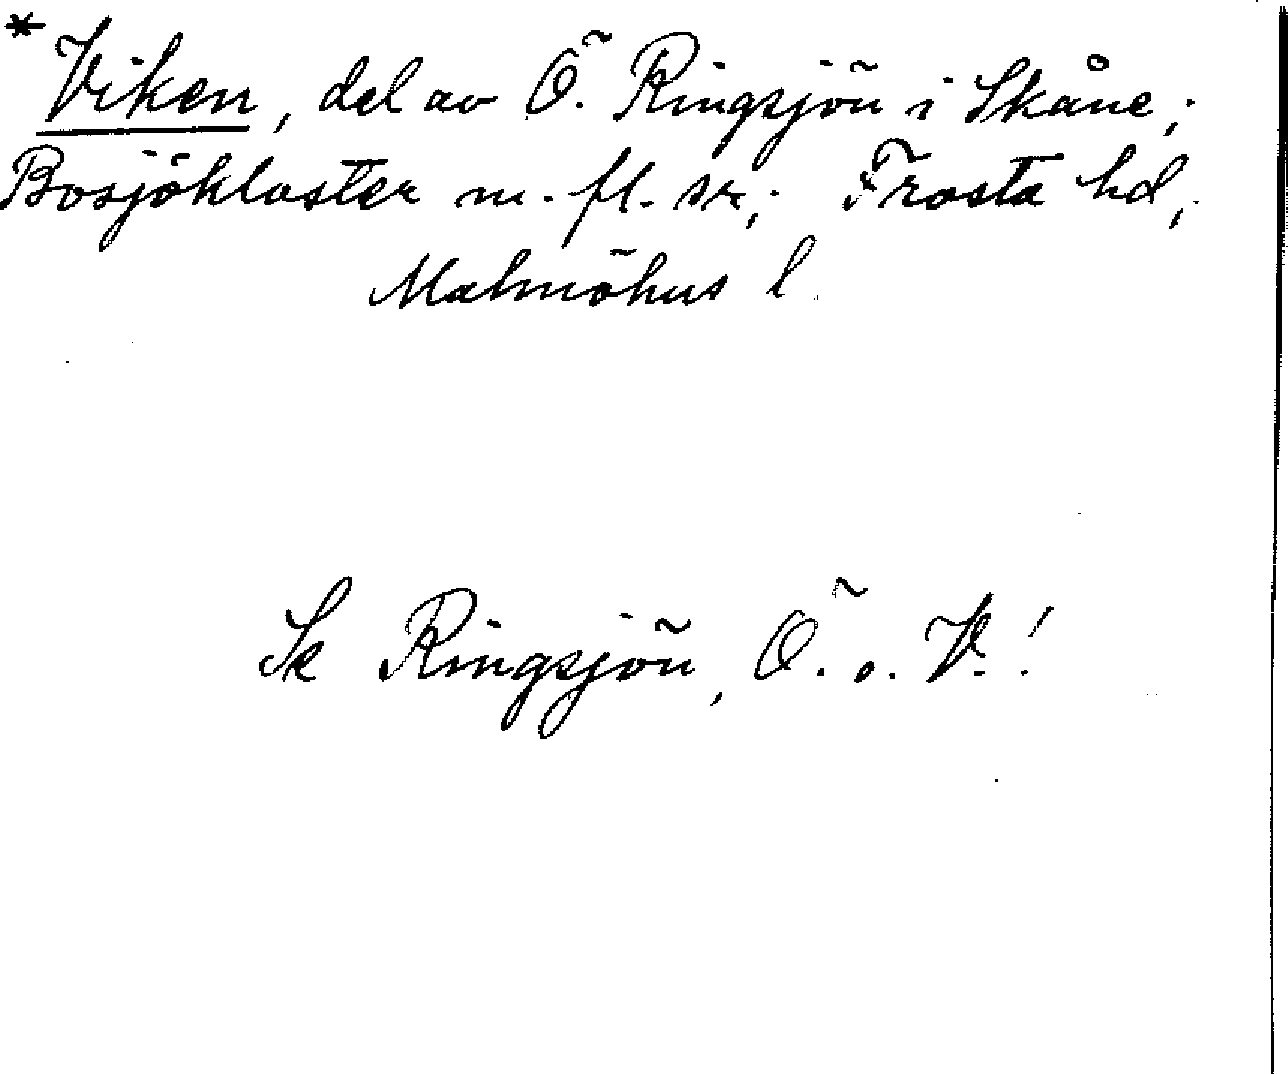 * Viken, del av Ö. Ringsjön i Skåne;
Bosjökloster m. fl. sr; Frosta hd,
Malmöhus l.
Se Ringsjön, Ö. o. V.!